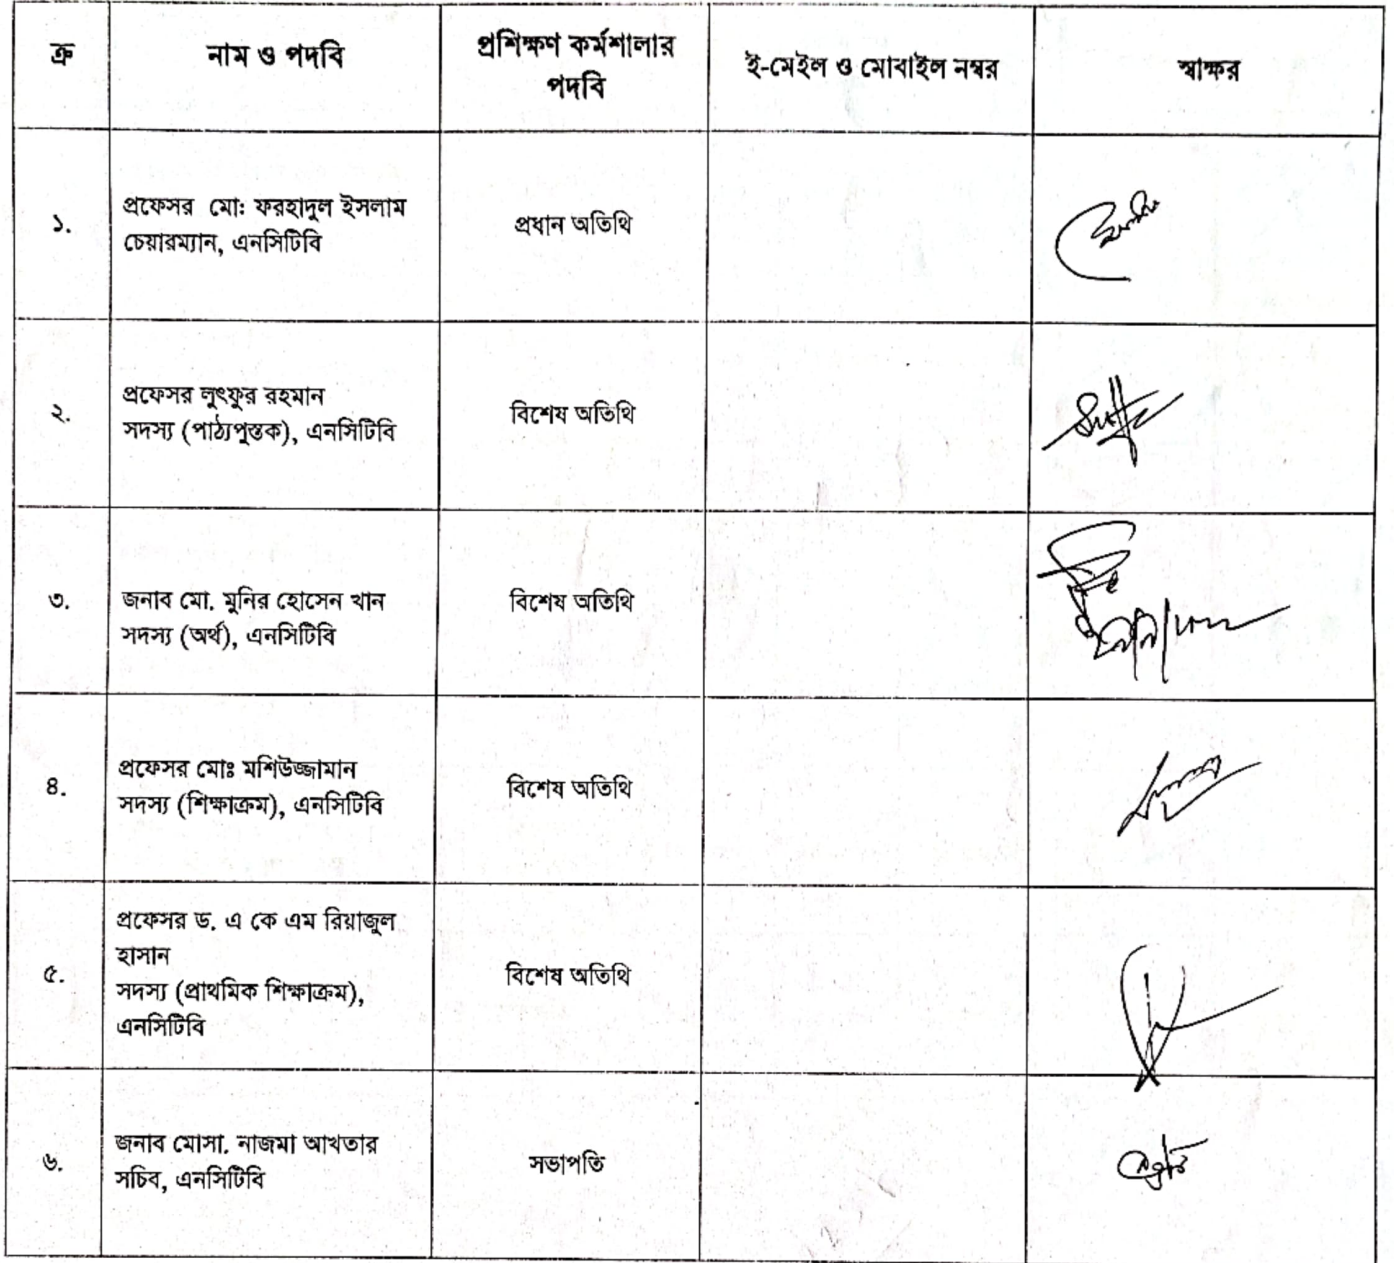 ক্র
নাম ও পদবি
প্রশিক্ষণ কর্মশালার
পদবি
ই-মেইল ও মোবাইল নম্বর
স্বাক্ষর
১.
প্রফেসর মো: ফরহাদুল ইসলাম
চেয়ারম্যান, এনসিটিবি
প্রধান অতিথি
২.
প্রফেসর লুৎফুর রহমান
সদস্য (পাঠ্যপুস্তক), এনসিটিবি
বিশেষ অতিথি
৩.
জনাব মো. মুনির হোসেন খান
সদস্য (অর্থ), এনসিটিবি
বিশেষ অতিথি
৪.
প্রফেসর মোঃ মশিউজ্জামান
সদস্য (শিক্ষাক্রম), এনসিটিবি
বিশেষ অতিথি
৫.
প্রফেসর ড. এ কে এম রিয়াজুল
হাসান
সদস্য (প্রাথমিক শিক্ষাক্রম),
এনসিটিবি
বিশেষ অতিথি
৬.
জনাব মোসা. নাজমা আখতার
সচিব, এনসিটিবি
সভাপতি